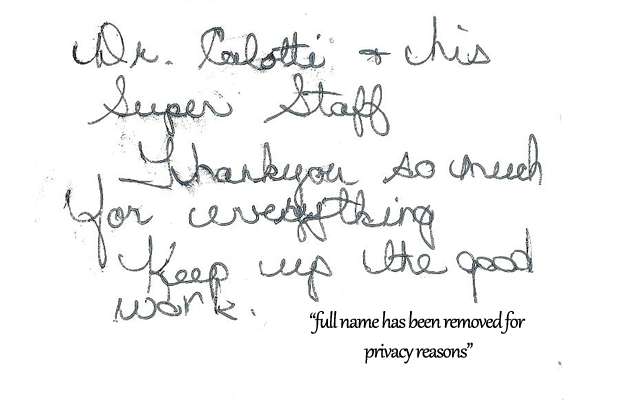 Dr. Calotti + his
Super Staff
Thankyou so much
for everything
Keep up the good
work.
“full name has been removed for
privacy reasons”